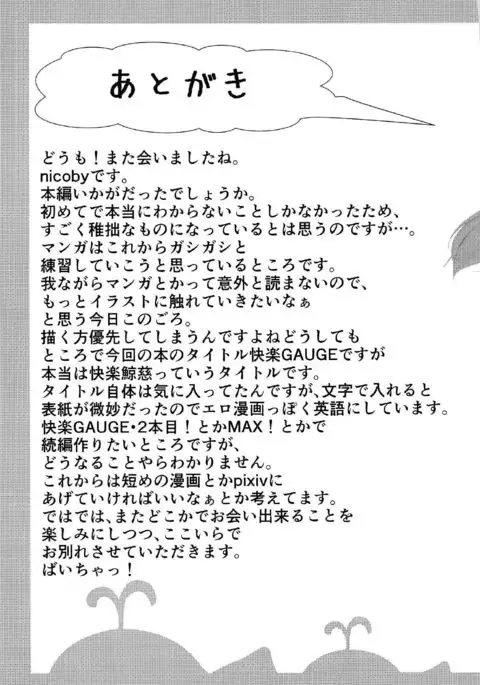 あとがき
どうも！また会いましたね。
nicobyです。
本編いかがだったでしょうか。
初めてで本当にわからないことしかなかったため、
すごく稚拙なものになっているとは思うのですが…。
マンガはこれからガシガシと
練習していこうと思っているところです。
我ながらマンガとかって意外と読まないので、
もっとイラストに触れていきたいなぁ
と思う今日このごろ。
描く方優先してしまうんですよねどうしても
ところで今回の本のタイトル快楽GAUGEですが
本当は快楽鯨慈っていうタイトルです。
タイトル自体は気に入ってたんですが、文字で入れると
表紙が微妙だったのでエロ漫画っぽく英語にしています。
快楽GAUGE・2本目！とかMAX！とかで
続編作りたいところですが、
どうなることやらわかりません。
これからは短めの漫画とかpixivに
あげていければいいなぁとか考えてます。
ではでは、またどこかでお会い出来ることを
楽しみにしつつ、ここいらで
お別れさせていただきます。
ばいちゃっ！